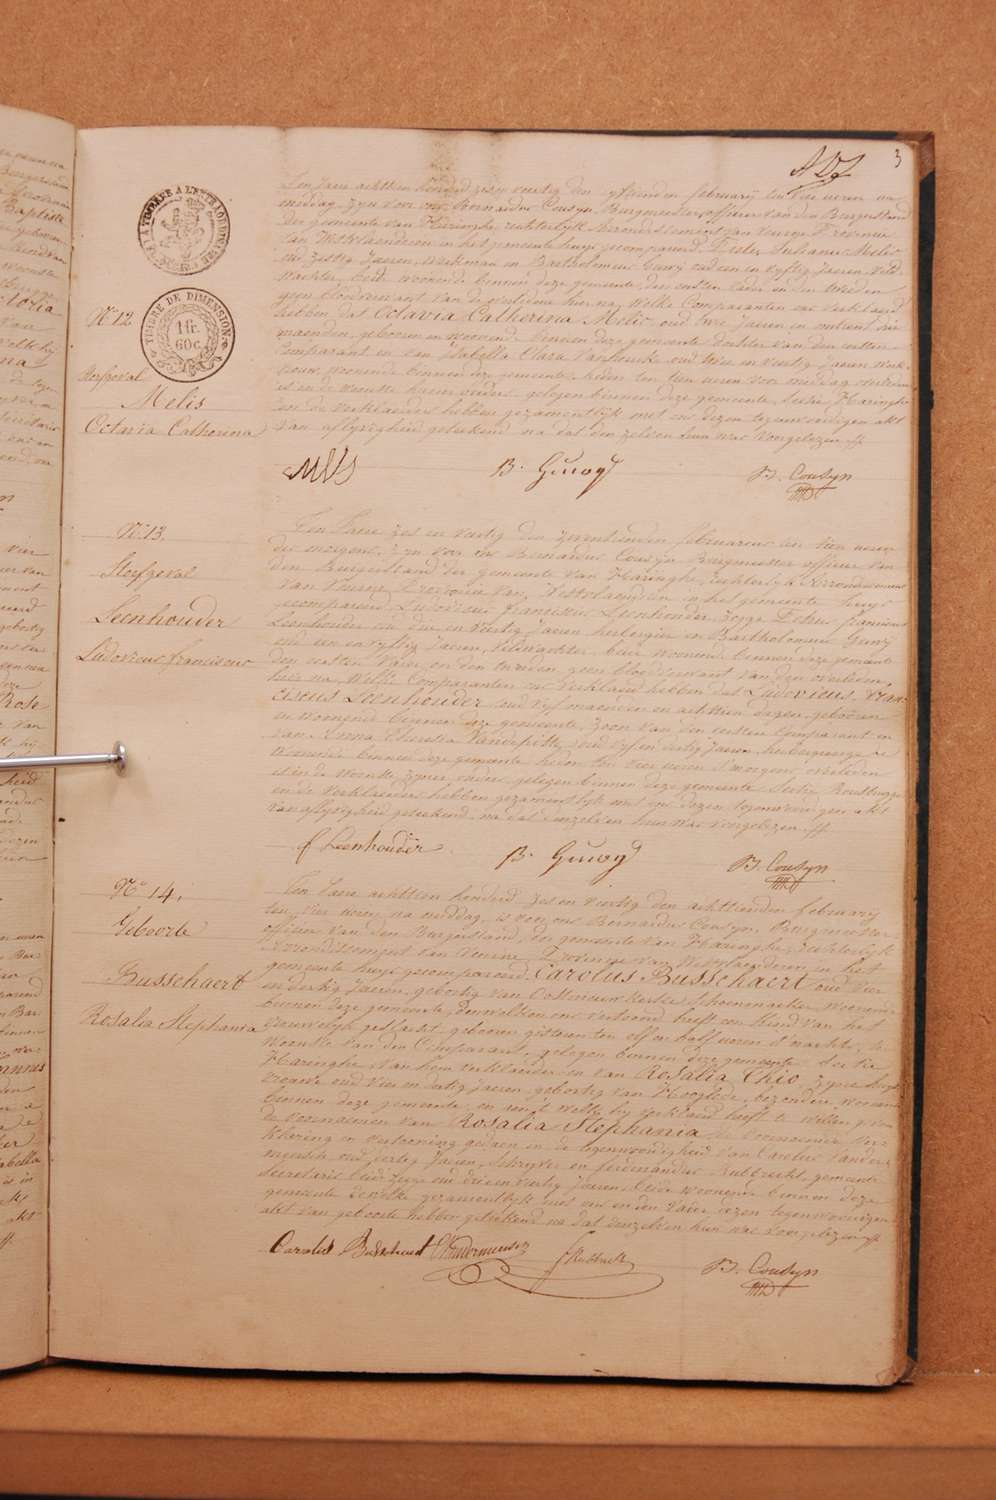 3
TIMBRE DE DIMENSION
1 fr.
60 c.
N° 12
Sterfgeval
Melis
Octavia Catherina
Ten Jaere achttien honderd zes en veertig den vyftienden february ten vier ueren na
middag, zyn voor ons Bernardus Cousyn, Burgmeester officier van den Burgerstand
der gemeente van Haringhe, rechterlyk Arrondissement van Veurne, Provincie
van Westvlaenderen in het gemeente huys gecompareerd Melis
oud zestig Jaeren, Werkman en Bartholomeus Guwy oud een en vyftig Jaeren, Veld
wachter, beide woonende binnen deze gemeente, den eersten Vader en den tweeden
geen bloedverwant van de overledene hier na, Welke Comparanten ons verklaerd
hebben dat Octavia Catherina Melis, oud twee Jaeren en
maenden, geboren en woonende binnen deze gemeente dochter van den eersten
Comparant en van Isabella Clara oud twee en veertig Jaeren Werk
vrouw, woonende binnen deze gemeente, heden ten tien ueren voor middag overleden
is in de Woonste haerer ouders gelegen binnen deze gemeente, Sectie Haringhe
en de Verklaerders hebben gezamentlyk met ons dezen tegenwoordigen akt
van aflyvigheid geteekend na dat den zelven hun was voorgelezen
B. Guwy
B. Cousyn
N° 13.
Sterfgeval
Leenhouder
Ludovicus franciscus
Ten Jaere zes en veertig den zeventienden februarius ten tien ueren
des morgens, zyn voor ons Bernardus Cousyn Burgmeester officier van
den Burgerstand der gemeente van Haringhe, rechterlyk Arrondissement
van Veurne, Provincie van Westvlaenderen in het gemeente huys
gecompareerd Ludovicus Franciscus Leenhouder, zoon Petrus franciscus
Leenhouder oud drie en veertig Jaeren herbergier en Bartholomeus Guwy
oud een en vyftig Jaeren, Veldwachter, beide woonende binnen deze gemeente
den eersten Vader en den tweeden geen bloedverwant van den overleden
hier na, Welke Comparanten ons verklaerd hebben dat Ludovicus Fran-
ciscus Leenhouder oud vyf maenden en achttien dagen, geboren
en woonende binnen deze gemeente, zoon van den eersten Comparant en
van Anna Theresia Vandepitte, oud vyf en dertig Jaeren, herbergierege
woonende binnen deze gemeente heden ten vier ueren s'morgens, overleden
is in de Woonste zyner ouders gelegen binnen deze gemeente Sectie Rousbrugge
en de Verklaerders hebben gezamentlyk met ons dezen tegenwoordigen akt
van aflyvigheid geteekend na dat den zelven hun was voorgelezen
f Leenhouder
B. Guwy
B. Cousyn
N° 14.
Geboorte
Busschaert
Rosalia Stephania
Ten Jaere achttien honderd zes en veertig den achttienden february
ten vier ueren na middag, is voor ons Bernardus Cousyn, Burgmeester
officier van den Burgerstand, der gemeente van Haringhe, rechterlyk
Arrondissement van Veurne, Provincie van Westvlaenderen in het
gemeente huys gecompareerd Carolus Busschaert oud vier
en dertig Jaeren, geboortig van Oostnieuwkerke Schoenmaeker, woonende
binnen deze gemeente, denwelken ons vertoond heeft een Kind van het
vrouwelyk geslacht, geboren gisteren ten elf en half ueren s'nachts, te
Woonste van den Comparant, gelegen binnen deze gemeente, sectie
Haringhe, van hem verklaerder en van Rosalia Chio zyne huys
vrouwe oud vier en dertig Jaeren, geboortig van Hooglede, bezondere, woonende
binnen deze gemeente, en aen 't welke hy verklaerd heeft te willen geven
de voornaemen van Rosalia Stephania de voornoemde ver-
klaring en vertooning gedaen in de tegenwoordigheid van Carolus Vander-
meersch oud veertig Jaeren, Schryver en ferdinandus Rubbrecht, gemeente
Secretaris oud drie en veertig Jaeren, beide woonende binnen deze
gemeente dewelke gezamentlyk met ons en den Vader dezen tegenwoordigen
akt van geboorte hebben geteekend na dat denzelven hun was voorgelezen
Carolus Busschaert
B. Cousyn